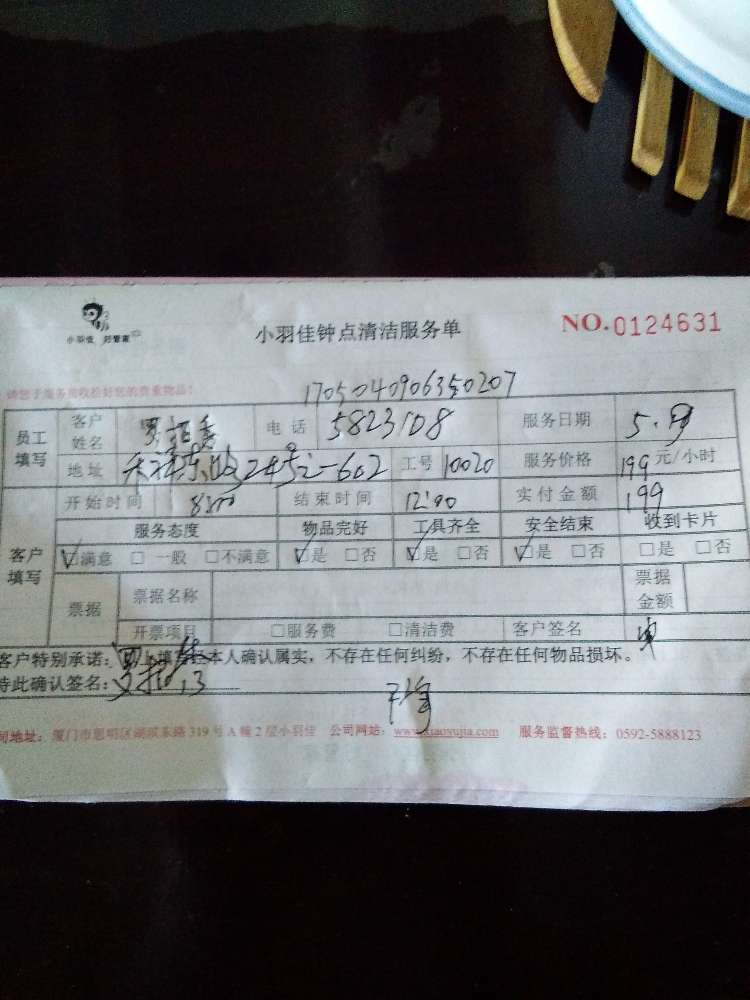 小羽佳 好管家
小羽佳钟点清洁服务单
NO.0124631
请您于服务前收拾好您的贵重物品!
1705040906350207
员工填写 客户姓名 电话 5823108 服务日期 5.
地址 24号 602 工号 10020 服务价格 199 元/小时
开始时间 8:00 结束时间 12:00 实付金额 199
客户填写 服务态度 物品完好 工具齐全 安全结束 收到卡片
☑满意 □一般 □不满意 ☑是 □否 ☑是 □否 ☑是 □否 □是 □否
票据 票据名称 票据金额
开票项目 □服务费 □清洁费 客户签名
客户特别承诺: 以上填写经本人确认属实,不存在任何纠纷,不存在任何物品损坏。
特此确认签名:
司地址: 厦门市思明区湖滨东路319号A幢2层小羽佳 公司网站: www.xiaoyujia.com 服务监督热线: 0592-5888123